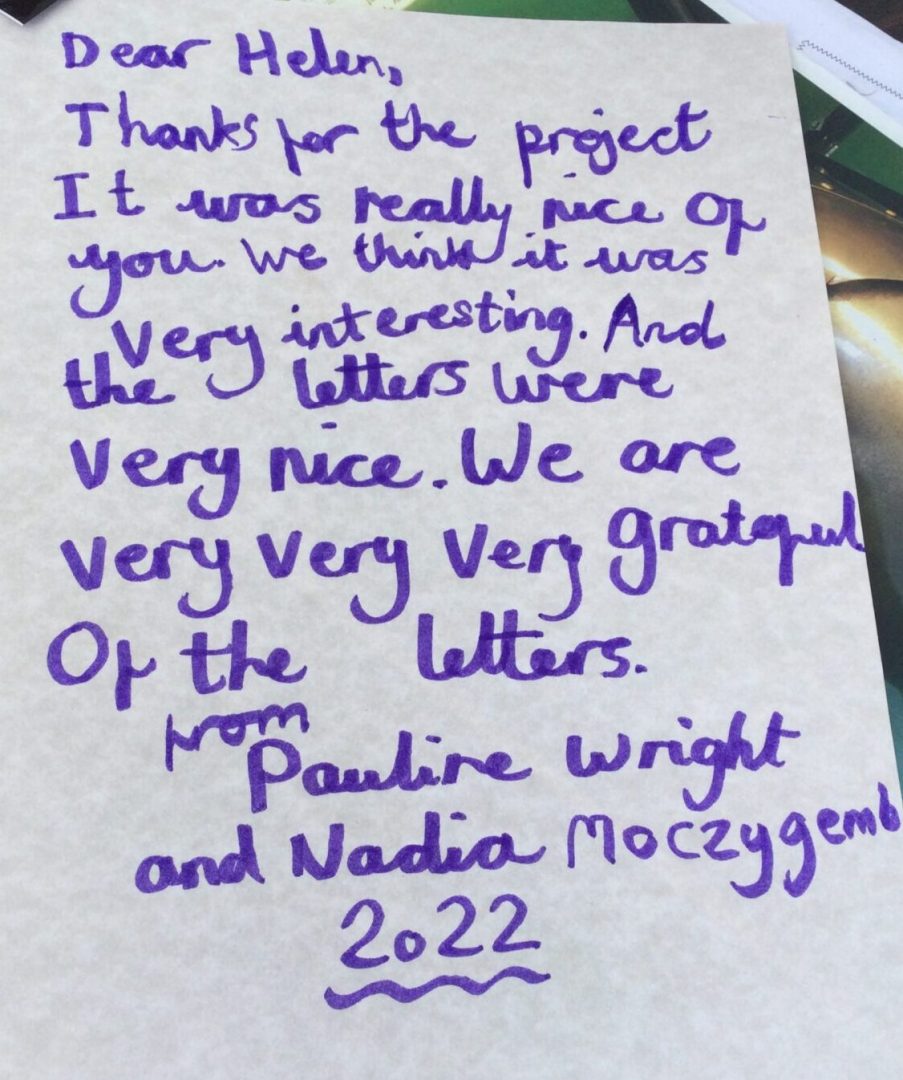 Dear Helen,
Thanks for the project
It was really nice of
you. We think it was
very interesting. And
the letters were
very nice. We are
very very very grateful
Of the letters.
from
Pauline Wright
and Nadia Moczygemb
2022